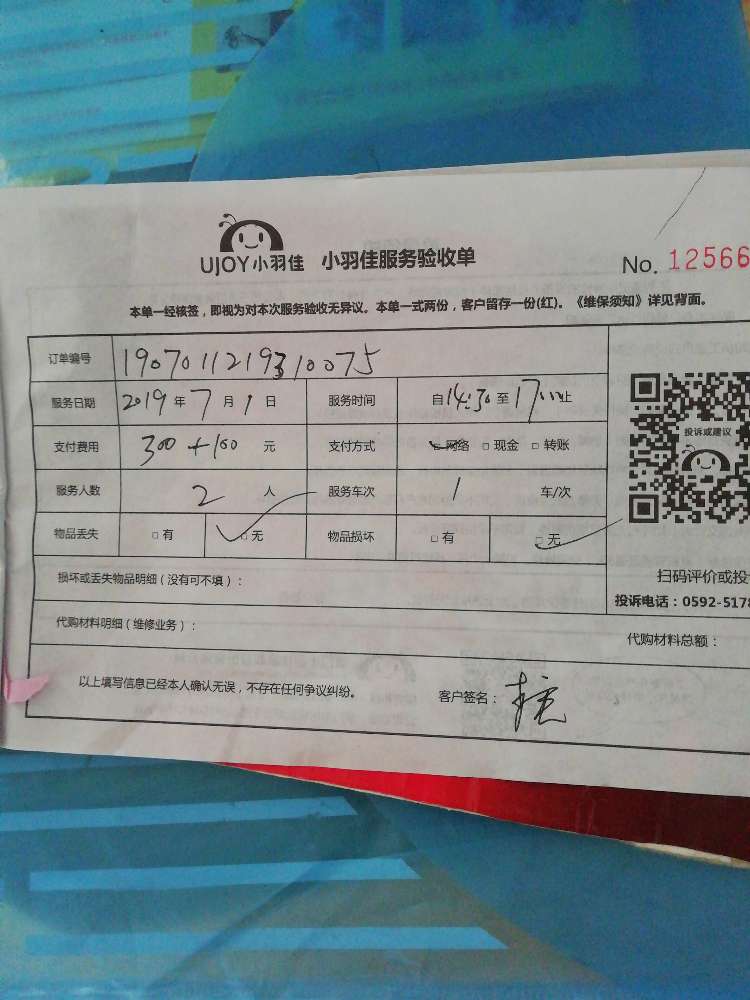 UJOY小羽佳 小羽佳服务验收单
No. 12566
本单一经核签，即视为对本次服务验收无异议。本单一式两份，客户留存一份(红)。《维保须知》详见背面。
订单编号 190701121931007​5
服务日期 2019 年 7 月 1 日 服务时间 自14:30 至 17:00止
支付费用 300+100 元 支付方式 □网络 □现金 □转账
投诉或建议
服务人数 2 人 服务车次 1 车/次
物品丢失 □有 □无 物品损坏 □有 □无
损坏或丢失物品明细（没有可不填）：
扫码评价或投
投诉电话：0592-5178
代购材料明细（维修业务）：
代购材料总额：
以上填写信息已经本人确认无误，不存在任何争议纠纷。 客户签名：